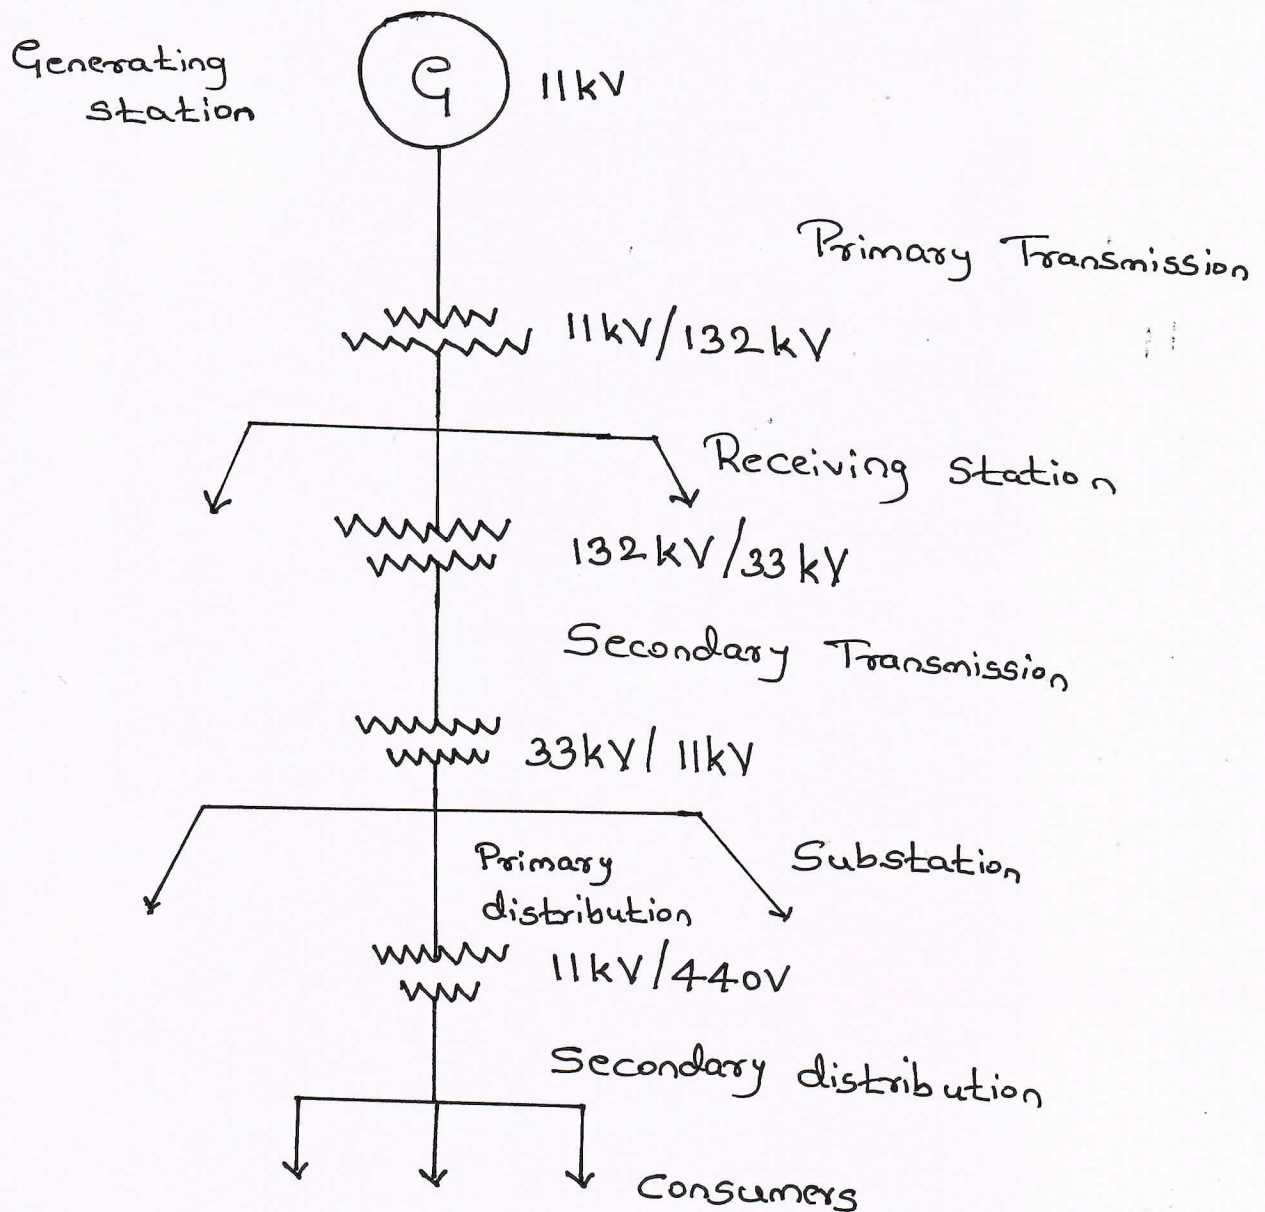 Generating
station
G
11kV
Primary Transmission
11kV/132kV
Receiving Station
132kV/33kV
Secondary Transmission
33kV/11kV
Primary
distribution
Substation
11kV/440V
Secondary distribution
Consumers